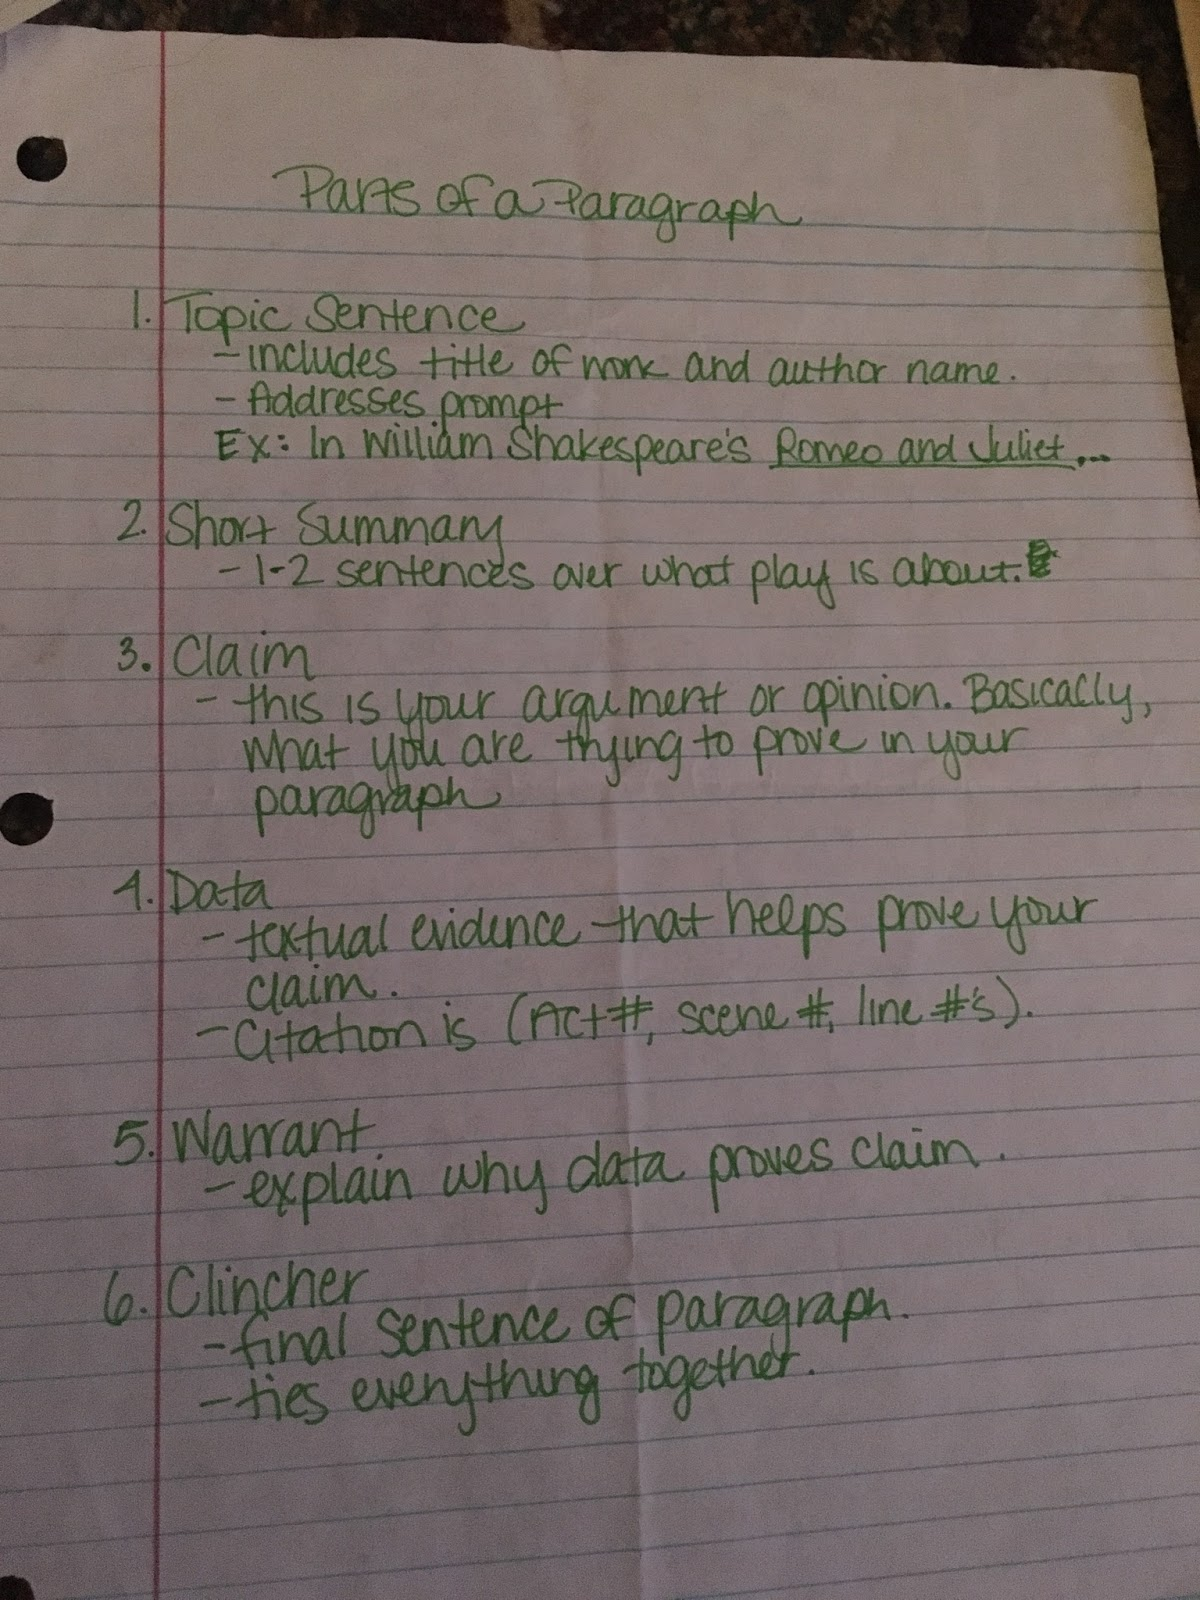 Parts of a Paragraph
1. Topic Sentence
- includes title of work and author name.
- Addresses prompt
EX: In William Shakespeare's Romeo and Juliet...
2. Short Summary
- 1-2 sentences over what play is about.
3. Claim
- this is your argument or opinion. Basically,
what you are trying to prove in your
paragraph
4. Data
- textual evidence that helps prove your
claim.
- Citation is (Act #, scene #, line #'s).
5. Warrant
- explain why data proves claim.
6. Clincher
- final sentence of paragraph.
- ties everything together.